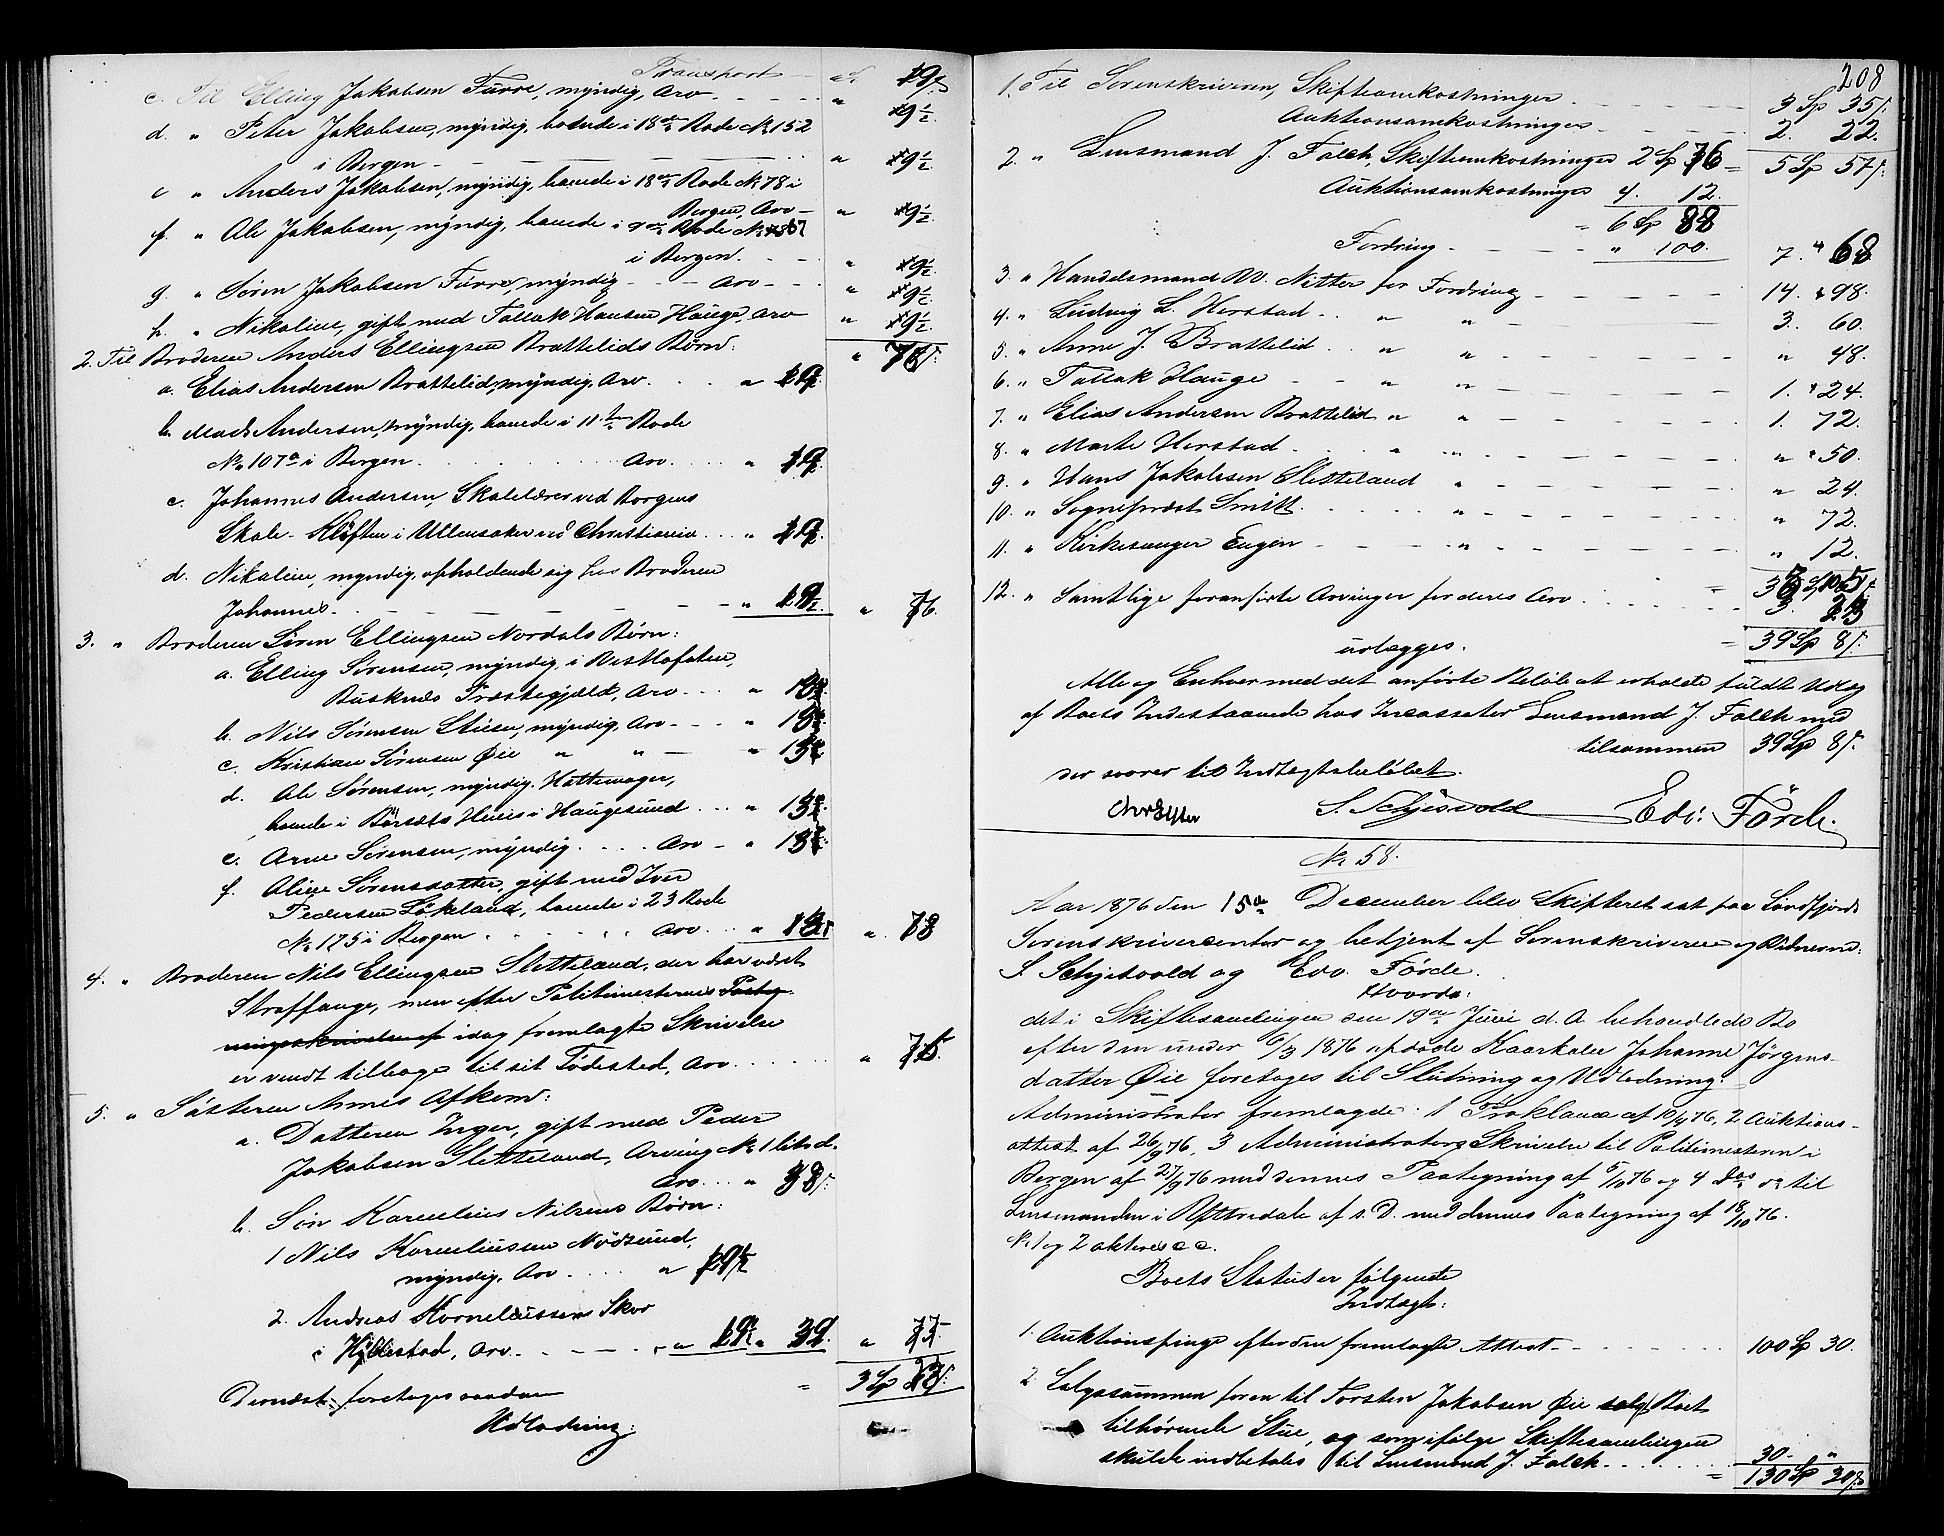 Transport
c. Til Elling Jakobsen Furre, myndig, Arv 19½
d. " Peter Jakobsen, myndig, boende i 18de Rode No 152
i Bergen " 19½
e " Anders Jakobsen, myndig, boende i 18de Rode No 78 i
Bergen, Arv " 19½
f. " Ole Jakobsen, myndig, boende i 9de Rode No
i Bergen " 19½
g. " Sören Jakobsen Furre, myndig Arv " 19½
h. " Nikoline, gift med Tollak Hansen Hauge, Arv " 19½
2. Til Broderen Anders Ellingsen Brattelids Børn: "
a. Elias Andersen Brattelid, myndig, Arv. "
b. Mads Andersen, myndig, boende i 11te Rode
No 107a i Bergen. Arv. "
c. Johannes Andersen, Skolelærer ved Borgens
Skole - Kløften i Ullensaker ved Christiania "
d. Nikoline, myndig, opholdende sig hos Broderen
Johannes. " " 76
3. " Broderen Sören Ellingsen Nordals Børn:
a. Elling Sørensen, myndig, i
Busknes Præstegjæld, Arv "
b. Nils Sørensen Stuen, myndig, Arv "
c. Kristian Sørensen Øie " " "
d. Ole Sørensen, myndig, Hattemager,
boende i Huus i Haugesund "
e. Arne Sørensen, myndig. Arv "
f. Aline Sørensdatter, gift med Iver
Pedersen Løkeland, boende i 23 Rode
No 175 i Bergen Arv " " 78
4. " Broderen Nils Ellingsen Sletteland, der har været
Straffange, men efter Politimesterens
idag fremlagte Skrivelse
er vendt tilbage til sit Födested, Arv "
5. " Søsteren Annes Afkom:
a. Datteren Inger, gift med Peder
Jakobsen Sletteland, Arving No 1 litr d.
Arv "
b. Søn Kornelius Nilsens Børn:
1 Nils Korneliussen Nødsund,
myndig, Arv "
2. Andreas Korneliussen Skor
i Hyllestad, Arv "
= 3 Sp 23
Dernæst foretoges saadan
Udlodning:
208
1. Til Sorenskriveren, Skifteomkostninger 3 Sp 35
Auktionsomkostninger 2. 22.
5 Sp 57
2. " Lensmand J. Falch, Skifteomkostninger 2 Sp 76
Auktionsomkostninger 4. 12.
= 6 Sp 88
Fordring " 100. 7. " 68
3. " Handelsmand W. Nitter for Fordring 14. " 98.
4. " Ludvig L. Herstad " " 3. 60.
5. " Anne J. Brattelid " " " 48.
6. " Tollak Hauge " " 1. " 24.
7. " Elias Andersen Brattelid " " 1. 72.
8. " Marte Herstad " " " 50.
9. " Hans Jakobsen Sletteland " " 24.
10. " Sognepræst Smitt " " 72.
11. " Kirkesanger Eugen " " 12.
12. " Samtlige foranførte Arvinger for deres Arv 3. 23
udlægges. = 39 Sp 8
Alle og Enhver med det anførte Beløb at erholde fuldt Udlæg
af Boets Indestaaende hos Incassator Lensmand J. Falch med
tilsammen 39 Sp 8
der svarer til Indtægtsbeløbet.
S. Schjesvold Edv: Förde.
No 58.
Aar 1876 den 15de December blev Skifteret sat paa Søndfjords
Sorenskriverkontor og betjent af Sorenskriveren og Vidnerne:
S. Schjesvold og Edv. Förde.
Hvorda:
det i Skiftesamlingen den 19de Juni d. A. behandlede Bo
efter den under 6/3 1876 afdøde Kaarkone Johanne Jörgens-
datter Øie foretoges til Slutning og Udlodning:
Administrator fremlagde: 1 Proklama af 10/9 76, 2 Auktions-
attest af 26/9 76, 3 Administrators Skrivelse til Politimesteren i
Bergen af 27/9 76 med dennes Paategning af 5/10 76 og 4 dos do til
Lensmanden i Yttredale af s. D. med dennes Paategning af 18/10 76.
No 1 og 2 akteres c c.
Boets Status er følgende
Indtægt:
1. Auktionspenge efter den fremlagte Attest 100 Sp 30.
2 Salgssummen for en til Torsten Jakobsen Øie solgt Boet
tilhørende Stue, og som ifølge Skiftesamlingen
skulde indbetales til Lensmand J. Falch 30 - "
= 130 Sp 30